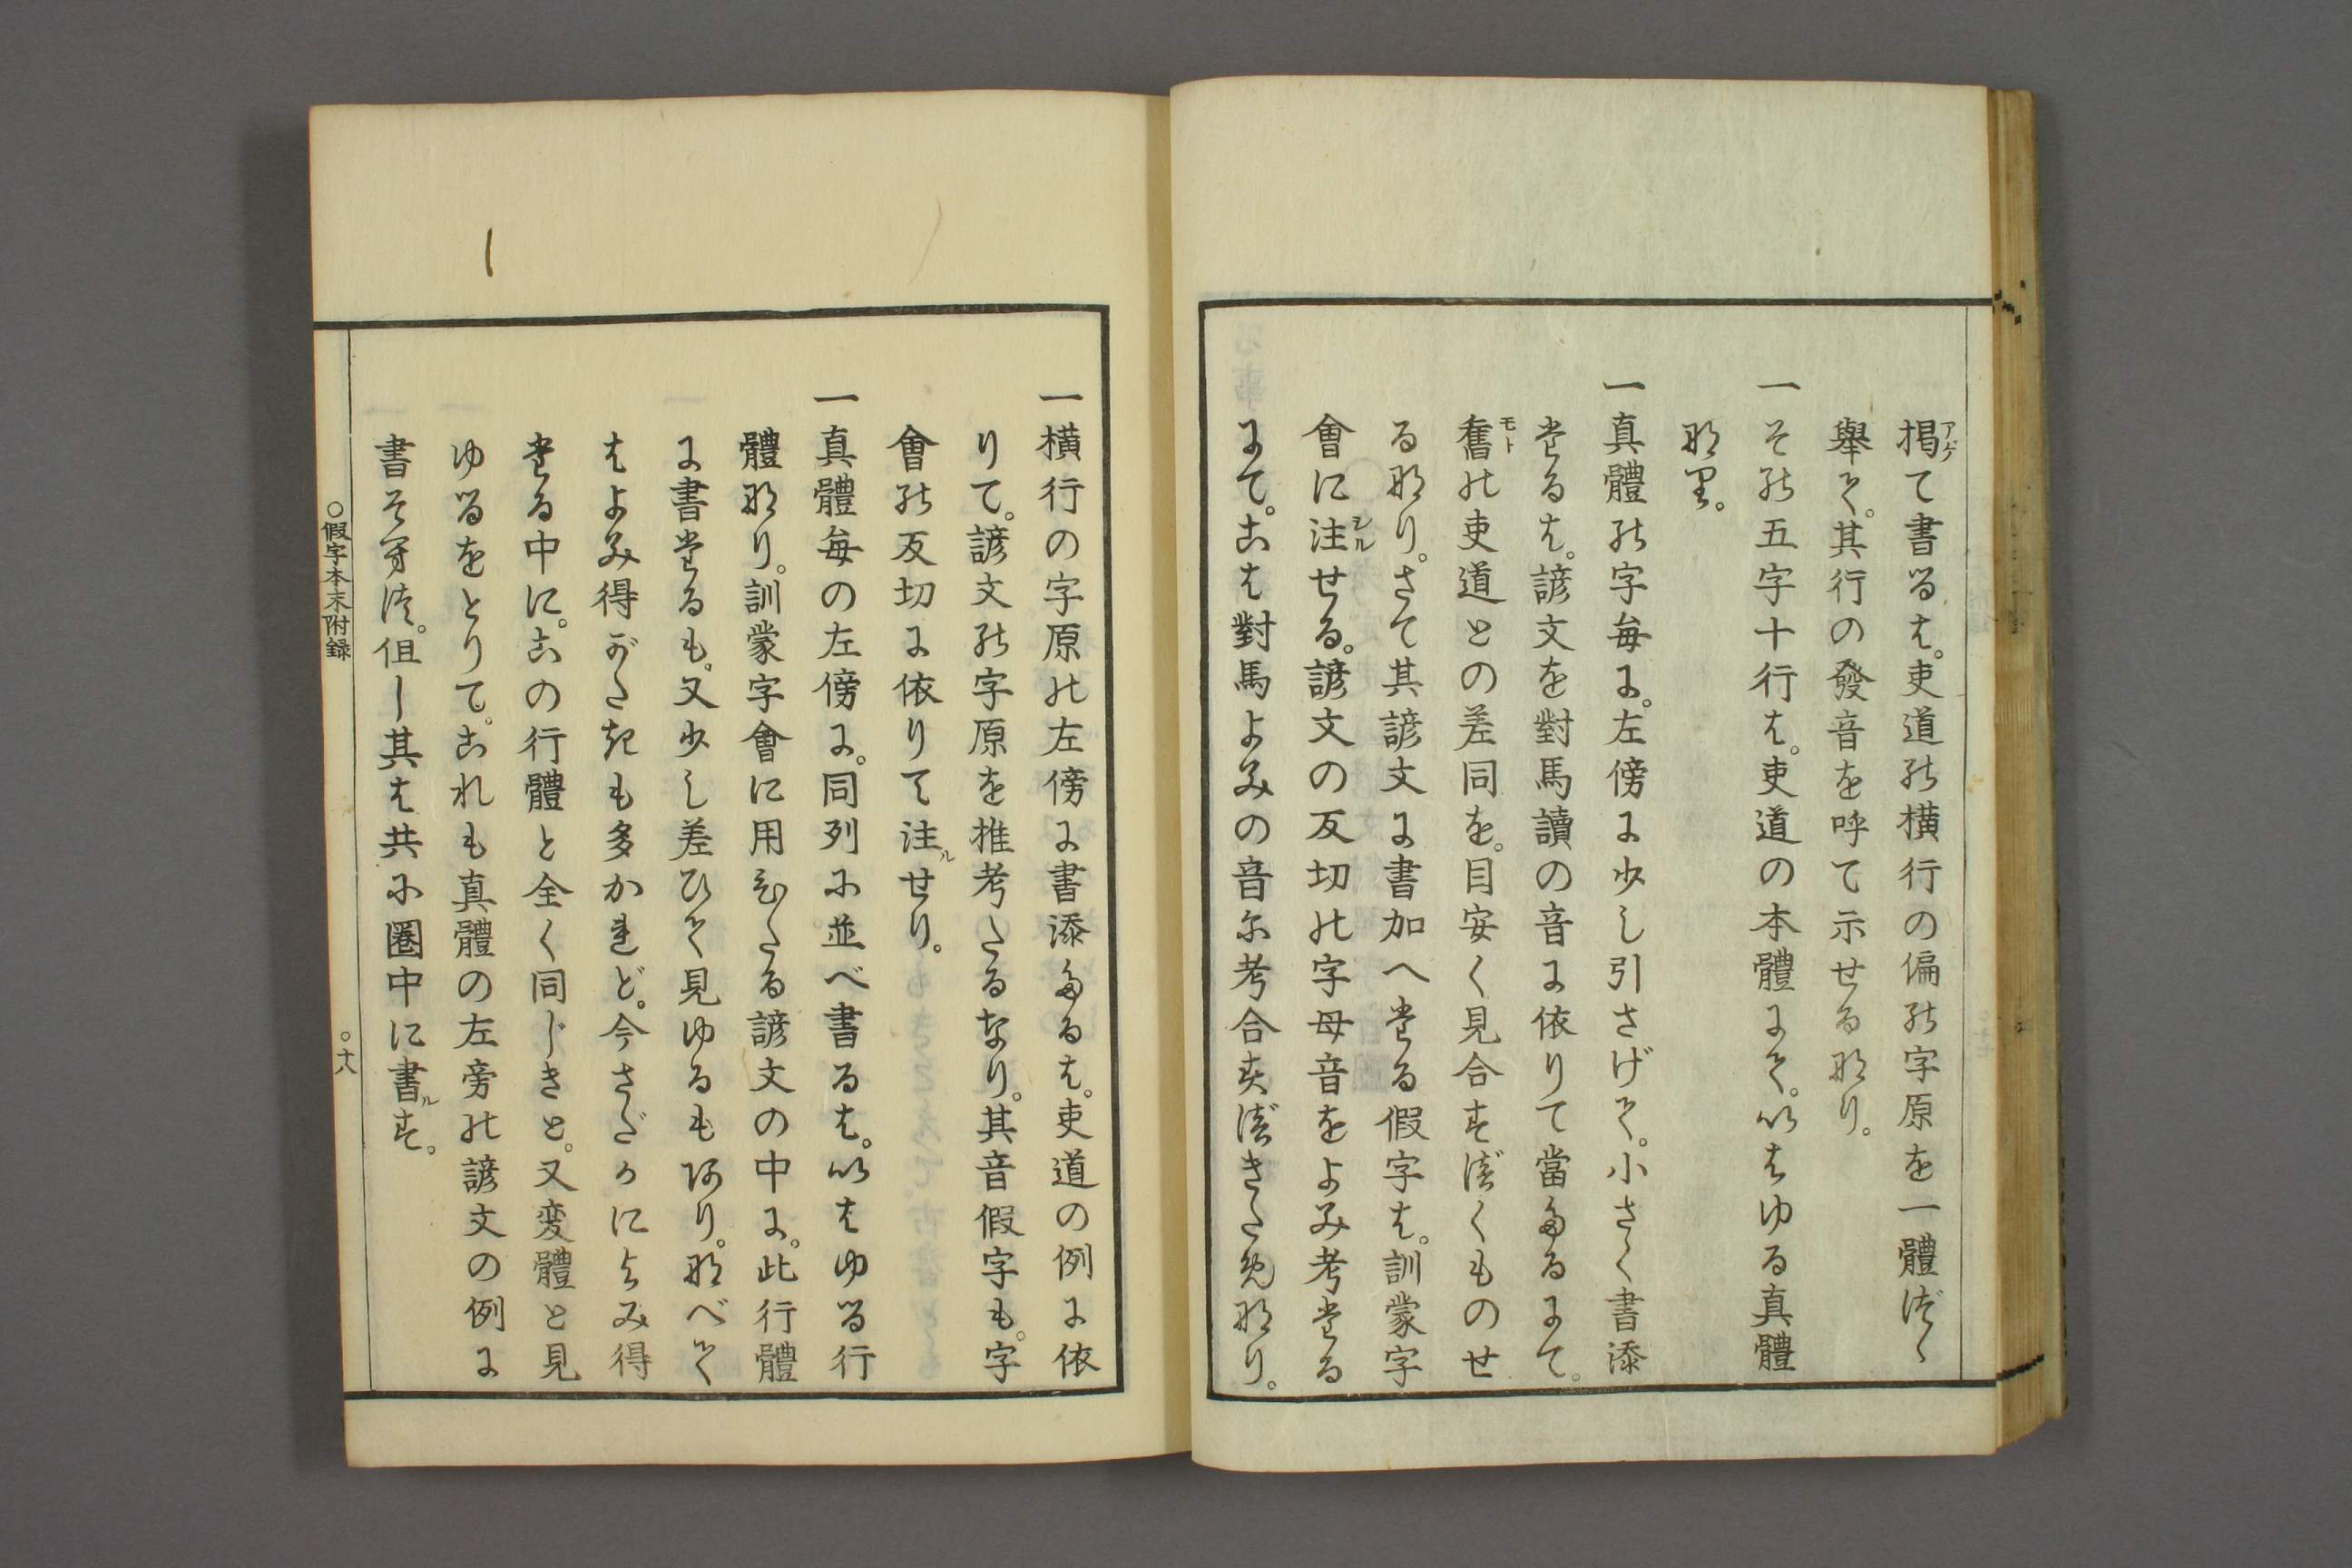 掲て書るは。吏道の横行の偏の字原を一體づゝ
擧て。其行の發音を呼て示せるなり。
一その五字十行は。吏道の本體にて。いはゆる真體
なり。
一真體の字毎に。左傍に少し引さげて。小さく書添
たるは。諺文を對馬讀の音に依りて當たるにて。
舊の吏道との差同を。目安く見合すべくものせ
るなり。さて其諺文に書加へたる假字は。訓蒙字
會に注せる。諺文の反切の字母音をよみ考たる
にて。こは對馬よみの音に考合すべきため なり。
一横行の字原の左傍に書添たるは。吏道の例に依
りて。諺文の字原を推考たるなり。其音假字も。字
會の反切に依りて注せり。
一真體毎の左傍に。同列に並べ書るは。いはゆる行
體なり。訓蒙字會に用ひたる諺文の中に。此行體
に書たるも。又少し差ひて見ゆるもあり。なべて
はよみ得がたきも多かれど。今さだかによみ得
たる中に。この行體と全く同じきと。又変體と見
ゆるをとりて。これも真體の左旁の諺文の例に
書そへつ。但し其は共に圏中に書す。
○假字本末附録
○十八